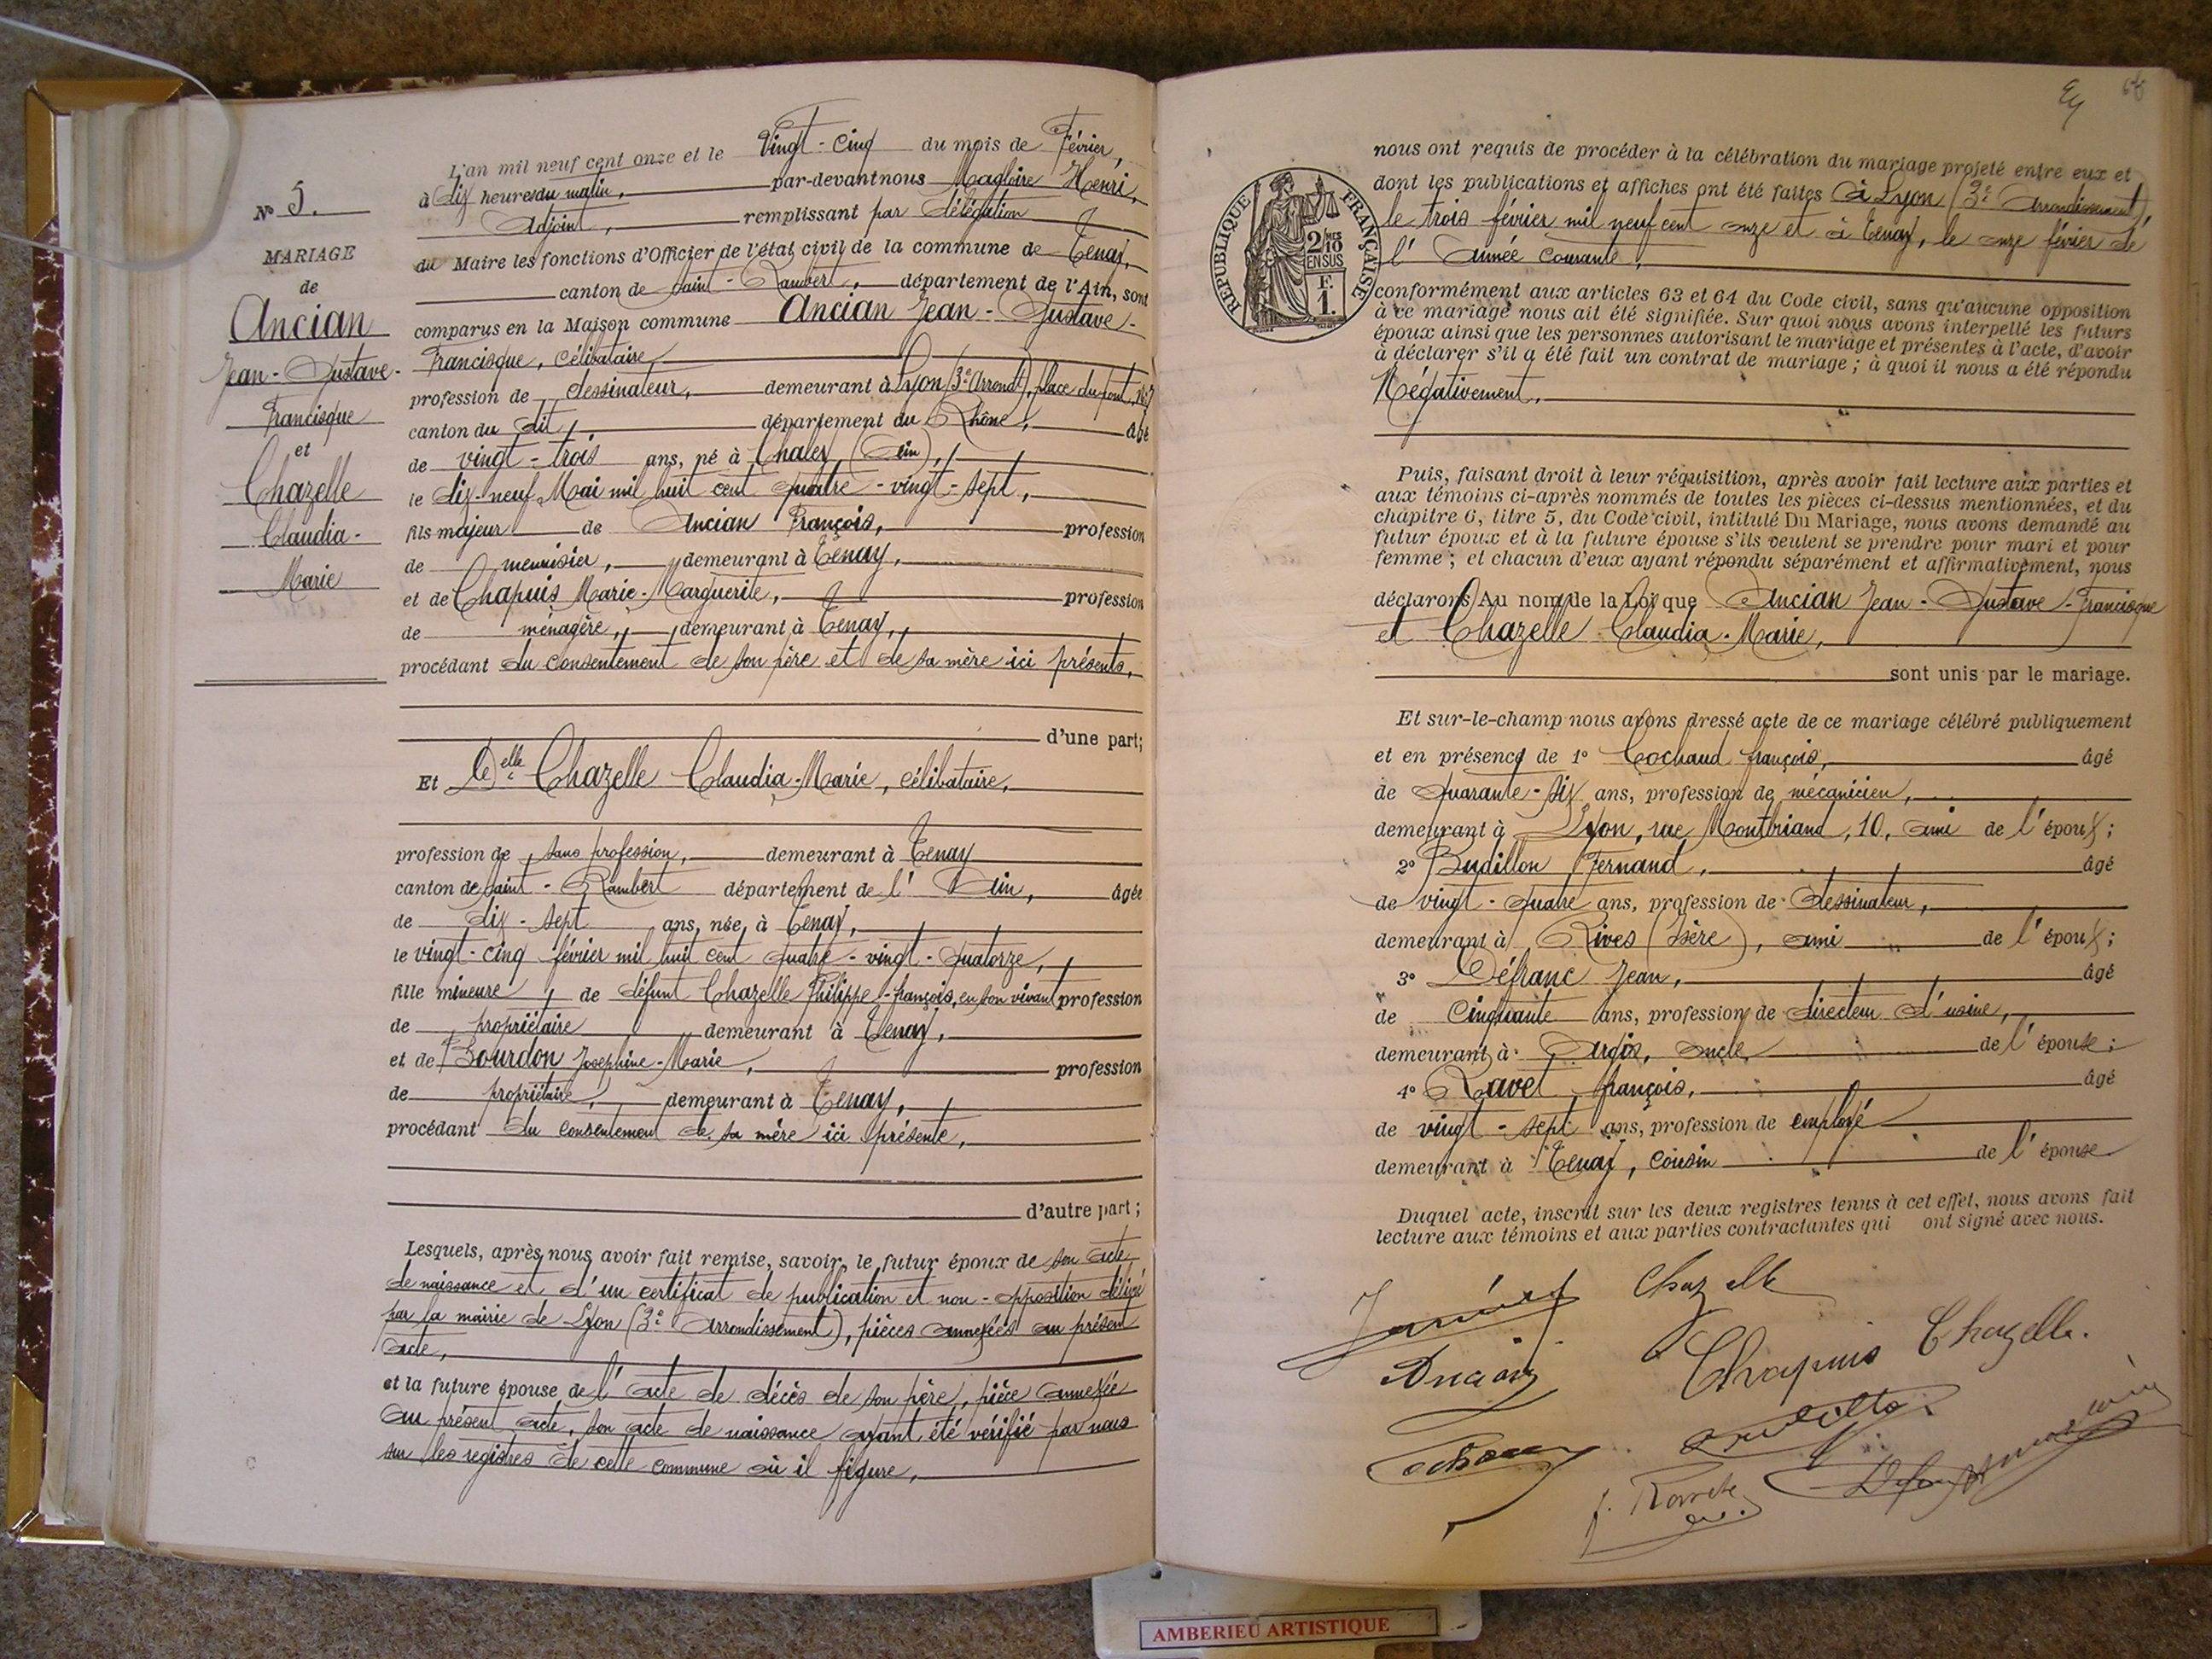 L'an mil neuf cent onze et le Vingt-cinq du mois de Février,
à dix heures du matin, par-devant nous Magloire Henri,
Adjoint, remplissant par délégation
du Maire les fonctions d'Officier de l'état civil de la commune de Tenay,
canton de Saint-Rambert, département de l'Ain, sont
comparus en la Maison commune Ancian Jean-Gustave-
Francisque, célibataire
profession de dessinateur, demeurant à Lyon (3e Arrondt), place du pont,
canton du dit, département du Rhône, âgé
de vingt-trois ans, né à Chaley (Ain),
le dix-neuf Mai mil huit cent quatre-vingt-sept,
fils majeur de Ancian François, profession
de menuisier, demeurant à Tenay,
et de Chapuis Marie-Marguerite, profession
de ménagère, demeurant à Tenay,
procédant du consentement de son père et de sa mère ici présents,
d'une part;
Et Delle Chazelle Claudia-Marie, célibataire,
profession de sans profession, demeurant à Tenay
canton de Saint-Rambert département de l'Ain, âgée
de dix-sept ans, née à Tenay,
le vingt-cinq février mil huit cent quatre-vingt-quatorze,
fille mineure de défunt Chazelle Philippe-François, en son vivant profession
de propriétaire demeurant à Tenay,
et de Bourdon Joséphine-Marie, profession
de propriétaire, demeurant à Tenay,
procédant du consentement de sa mère ici présente,
d'autre part;
Lesquels, après nous avoir fait remise, savoir, le futur époux de son acte
de naissance et d'un certificat de publication et non-opposition délivré
par la mairie de Lyon (3e Arrondissement), pièces annexées au présent
acte,
et la future épouse de l'acte de décès de son père, pièce annexée
au présent acte, son acte de naissance ayant été vérifié par nous
sur les registres de cette commune où il figure,
No 5.
MARIAGE
de
Ancian
Jean-Gustave-
Francisque
et
Chazelle
Claudia-
Marie
RÉPUBLIQUE FRANÇAISE
2/10 EN SUS
F. 1.
nous ont requis de procéder à la célébration du mariage projeté entre eux et
dont les publications et affiches ont été faites à Lyon (3e Arrondissement),
le trois février mil neuf cent onze et à Tenay, le onze février de
l'Année courante,
conformément aux articles 63 et 64 du Code civil, sans qu'aucune opposition
à ce mariage nous ait été signifiée. Sur quoi nous avons interpellé les futurs
époux ainsi que les personnes autorisant le mariage et présentes à l'acte, d'avoir
à déclarer s'il a été fait un contrat de mariage; à quoi il nous a été répondu
Négativement,
Puis, faisant droit à leur réquisition, après avoir fait lecture aux parties et
aux témoins ci-après nommés de toutes les pièces ci-dessus mentionnées, et du
chapitre 6, titre 5, du Code civil, intitulé Du Mariage, nous avons demandé au
futur époux et à la future épouse s'ils veulent se prendre pour mari et pour
femme; et chacun d'eux ayant répondu séparément et affirmativement, nous
déclarons Au nom de la Loi que Ancian Jean-Gustave-Francisque
et Chazelle Claudia-Marie,
sont unis par le mariage.
Et sur-le-champ nous avons dressé acte de ce mariage célébré publiquement
et en présence de 1o Cochaud françois, âgé
de Quarante-six ans, profession de mécanicien,
demeurant à Lyon, rue Montbriand, 10, ami de l'époux;
2o Budillon Fernand, âgé
de vingt-quatre ans, profession de dessinateur,
demeurant à Rives (Isère), ami de l'époux;
3o Défranc Jean, âgé
de Cinquante ans, profession de directeur d'usine,
demeurant à Argis, oncle de l'épouse;
4o Ravet françois, âgé
de vingt-sept ans, profession de employé
demeurant à Tenay, cousin de l'épouse
Duquel acte, inscrit sur les deux registres tenus à cet effet, nous avons fait
lecture aux témoins et aux parties contractantes qui ont signé avec nous.
Chazelle
Ancian
Chapuis Chazelle.
AMBERIEU ARTISTIQUE